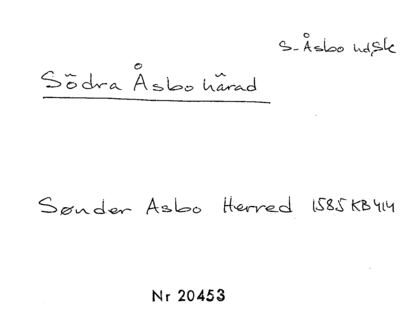 S-Åsbo hd, Sk
Södra Åsbo härad
Sønder Asbo Herred 1585 KB 414
Nr 20453